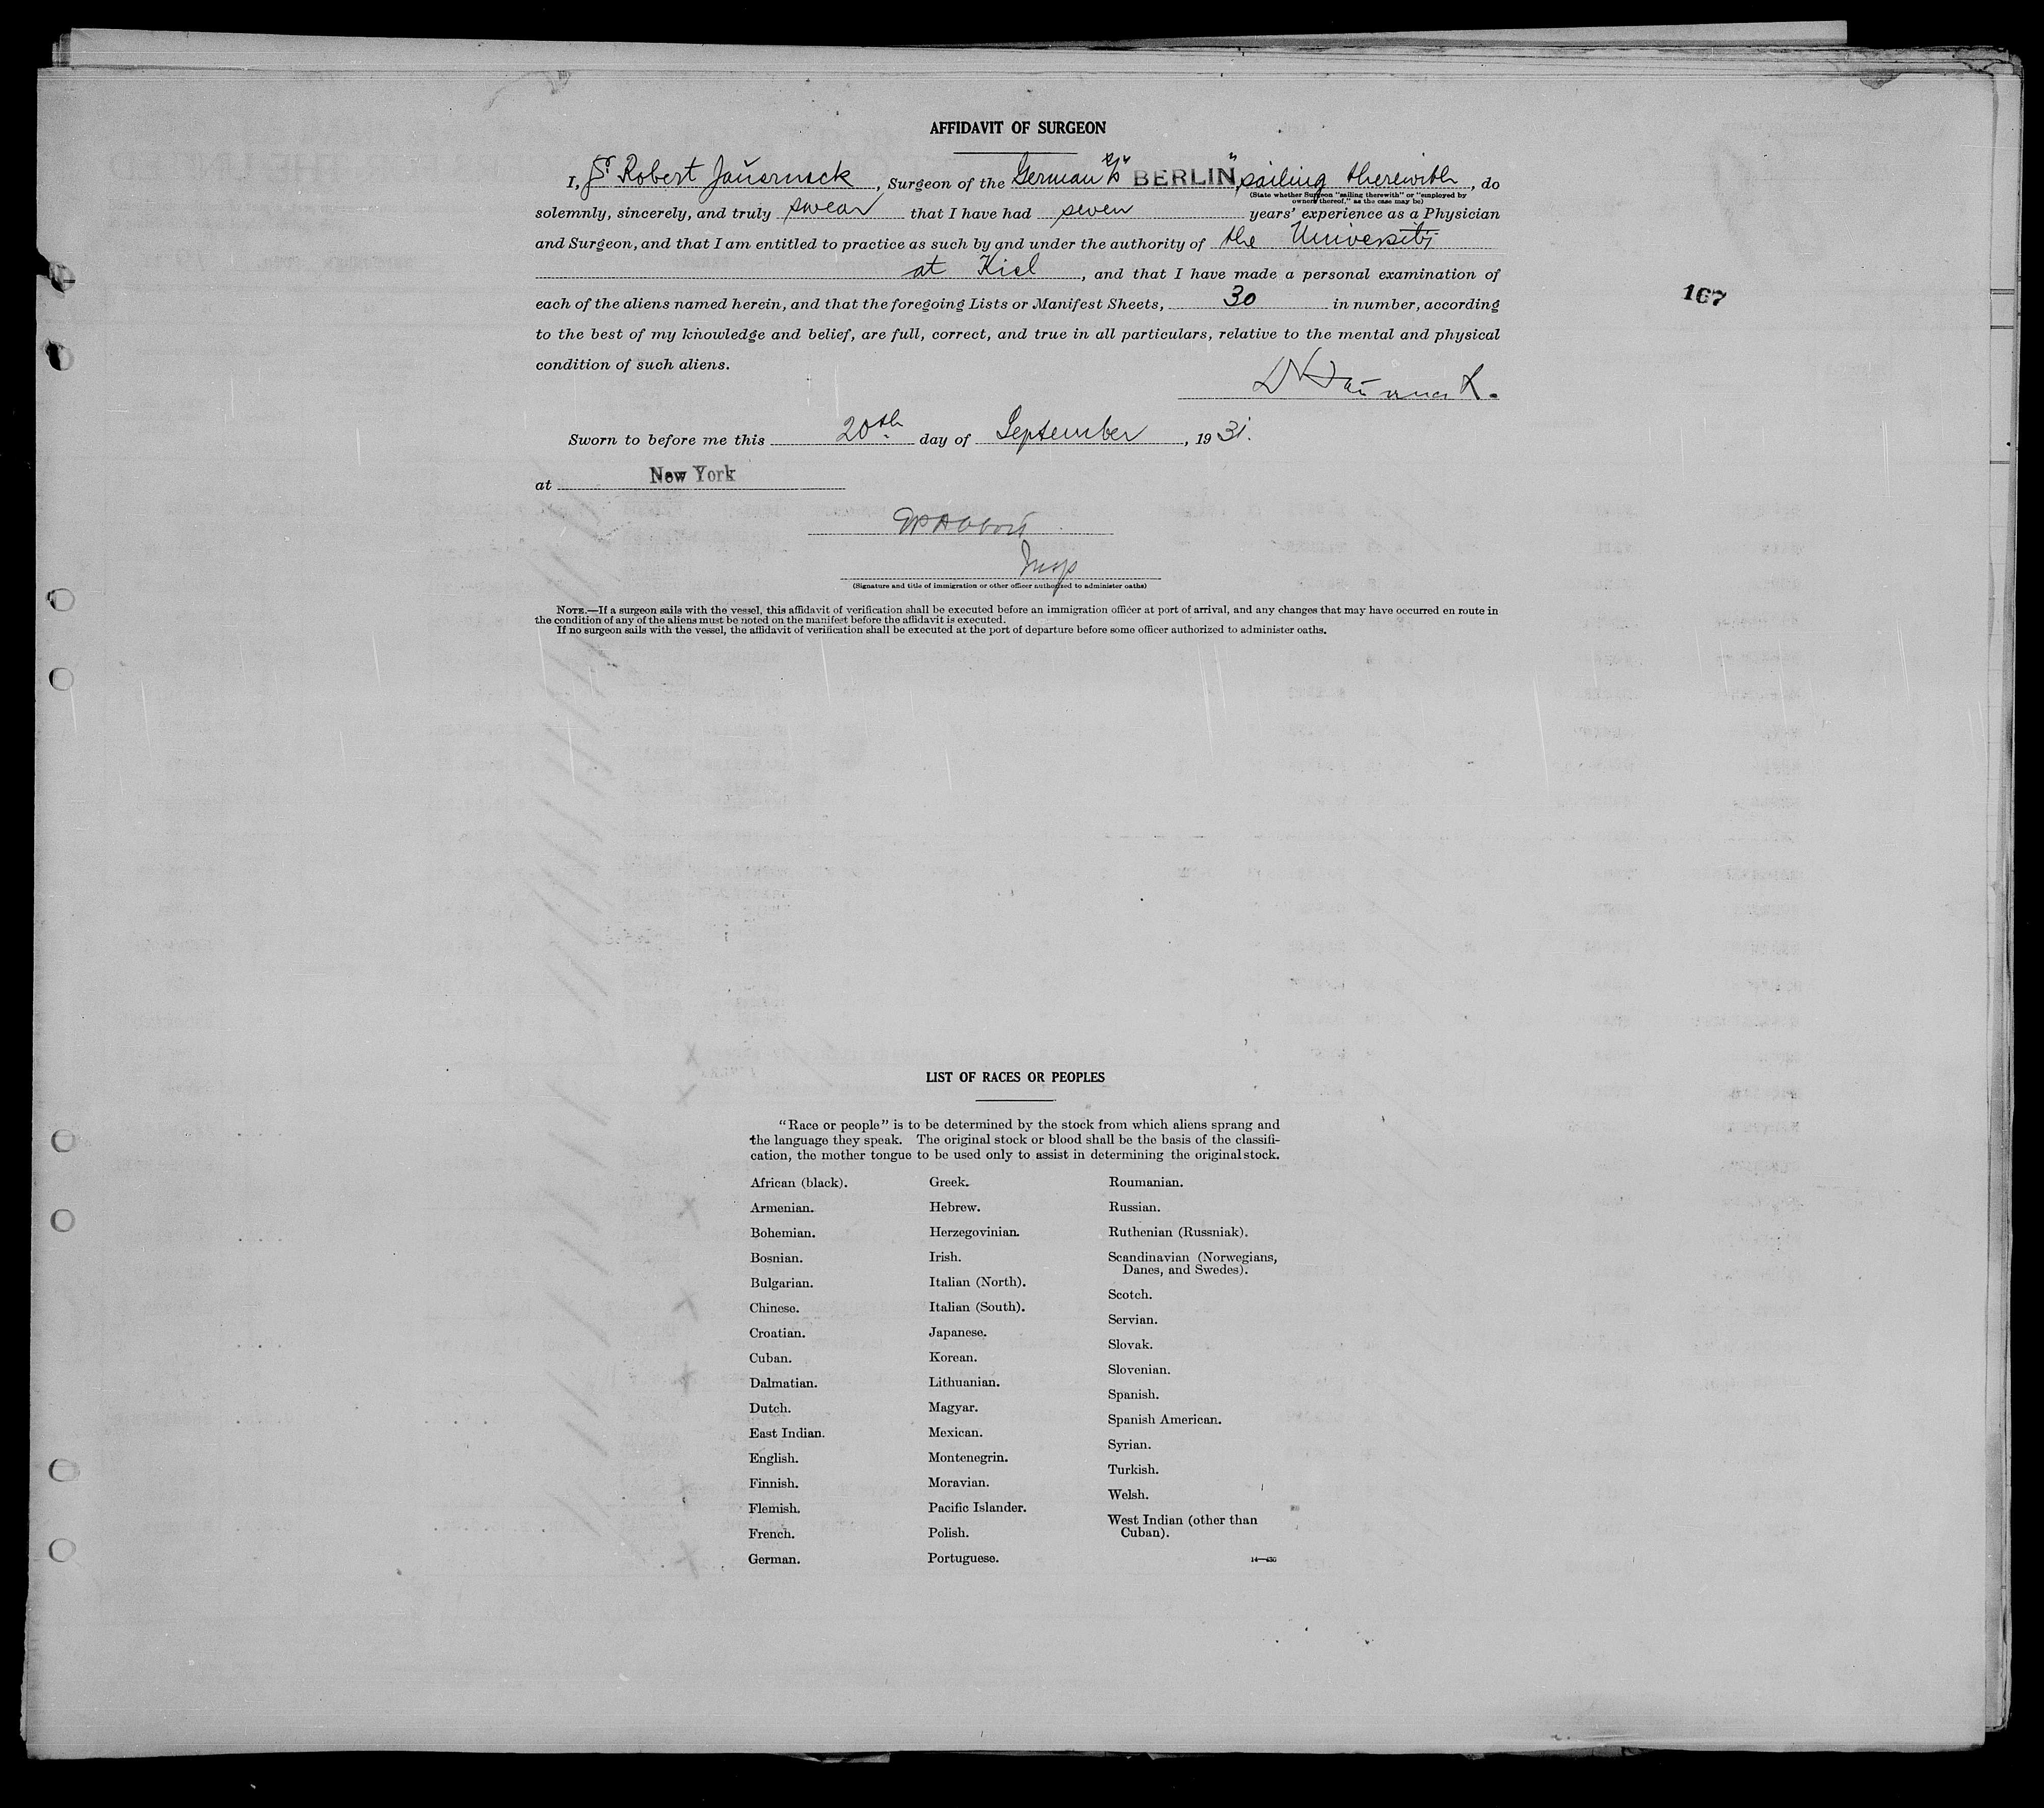 AFFIDAVIT OF SURGEON
I, Dr Robert Jauernick, Surgeon of the German S/S "BERLIN", sailing therewith, do
(State whether Surgeon "sailing therewith" or "employed by
owners thereof," as the case may be)
solemnly, sincerely, and truly swear that I have had seven years' experience as a Physician
and Surgeon, and that I am entitled to practice as such by and under the authority of the Universiti
at Kiel, and that I have made a personal examination of
each of the aliens named herein, and that the foregoing Lists or Manifest Sheets, 30 in number, according
167
to the best of my knowledge and belief, are full, correct, and true in all particulars, relative to the mental and physical
condition of such aliens.
Sworn to before me this 20th day of September, 1931.
at New York
Insp
(Signature and title of immigration or other officer authorized to administer oaths)
NOTE.—If a surgeon sails with the vessel, this affidavit of verification shall be executed before an immigration officer at port of arrival, and any changes that may have occurred en route in
the condition of any of the aliens must be noted on the manifest before the affidavit is executed.
If no surgeon sails with the vessel, the affidavit of verification shall be executed at the port of departure before some officer authorized to administer oaths.
LIST OF RACES OR PEOPLES
"Race or people" is to be determined by the stock from which aliens sprang and
the language they speak. The original stock or blood shall be the basis of the classifi-
cation, the mother tongue to be used only to assist in determining the original stock.
African (black).
Armenian.
Bohemian.
Bosnian.
Bulgarian.
Chinese.
Croatian.
Cuban.
Dalmatian.
Dutch.
East Indian.
English.
Finnish.
Flemish.
French.
German.
Greek.
Hebrew.
Herzegovinian.
Irish.
Italian (North).
Italian (South).
Japanese.
Korean.
Lithuanian.
Magyar.
Mexican.
Montenegrin.
Moravian.
Pacific Islander.
Polish.
Portuguese.
Roumanian.
Russian.
Ruthenian (Russniak).
Scandinavian (Norwegians,
Danes, and Swedes).
Scotch.
Servian.
Slovak.
Slovenian.
Spanish.
Spanish American.
Syrian.
Turkish.
Welsh.
West Indian (other than
Cuban).
14—430